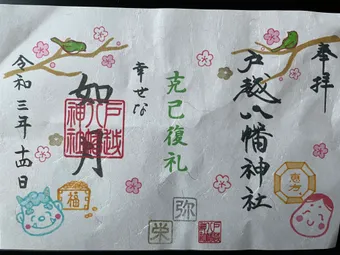 奉拝
戸越八幡神社
恵方
克己復礼
弥
栄
幸せな
如月
戸越
八幡
神社
令和三年十四日
福